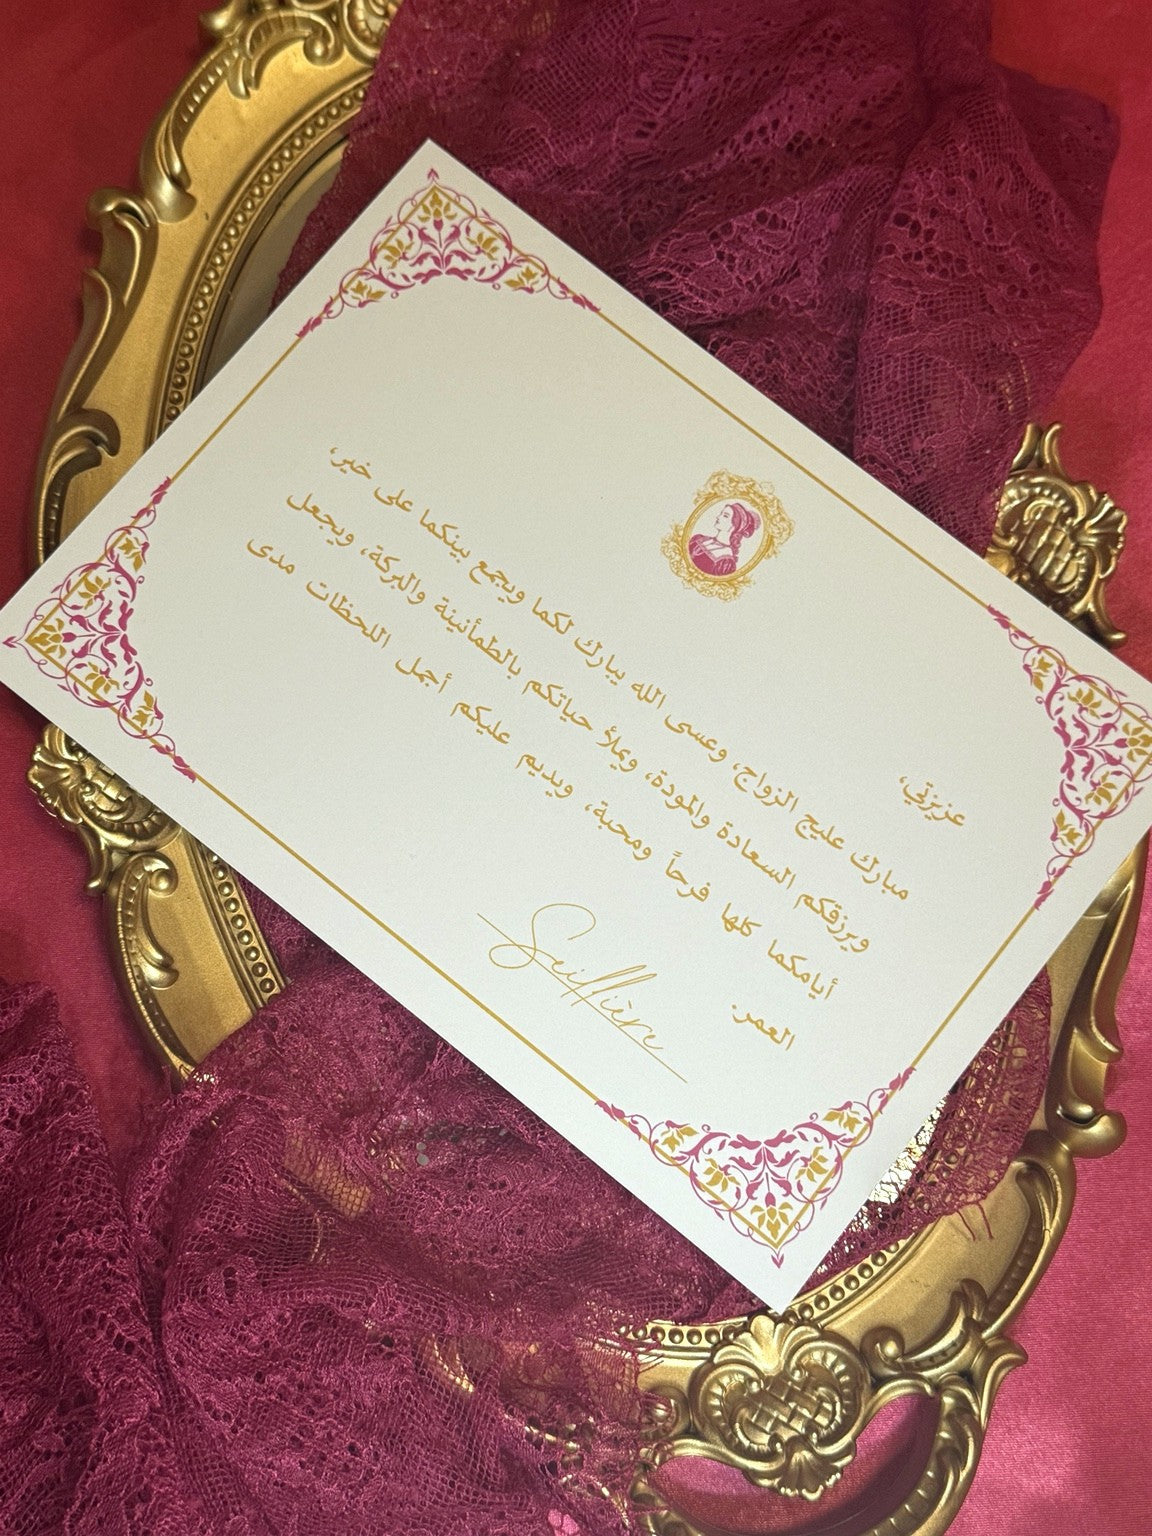 عزيزتي،
مبارك عليج الزواج، وعسى الله يبارك لكما ويجمع بينكما على خير،
ويرزقكم السعادة والمودة، ويملأ حياتكم بالطمأنينة والبركة، ويجعل
أيامكما كلها فرحاً ومحبة، ويديم عليكم أجمل اللحظات مدى
العمر.
Seiffière